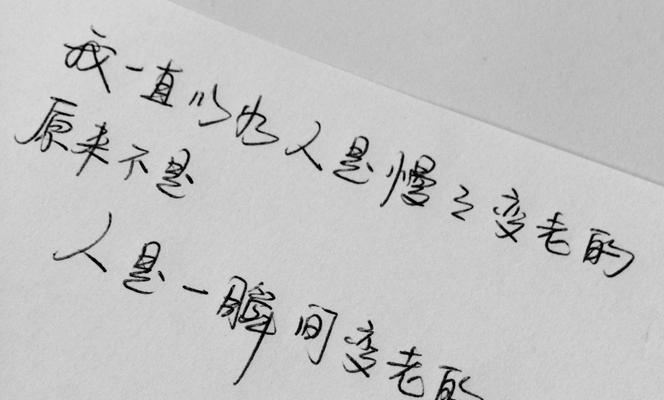 我一直以为人是慢々变老的
原来不是
人是一瞬间变老的